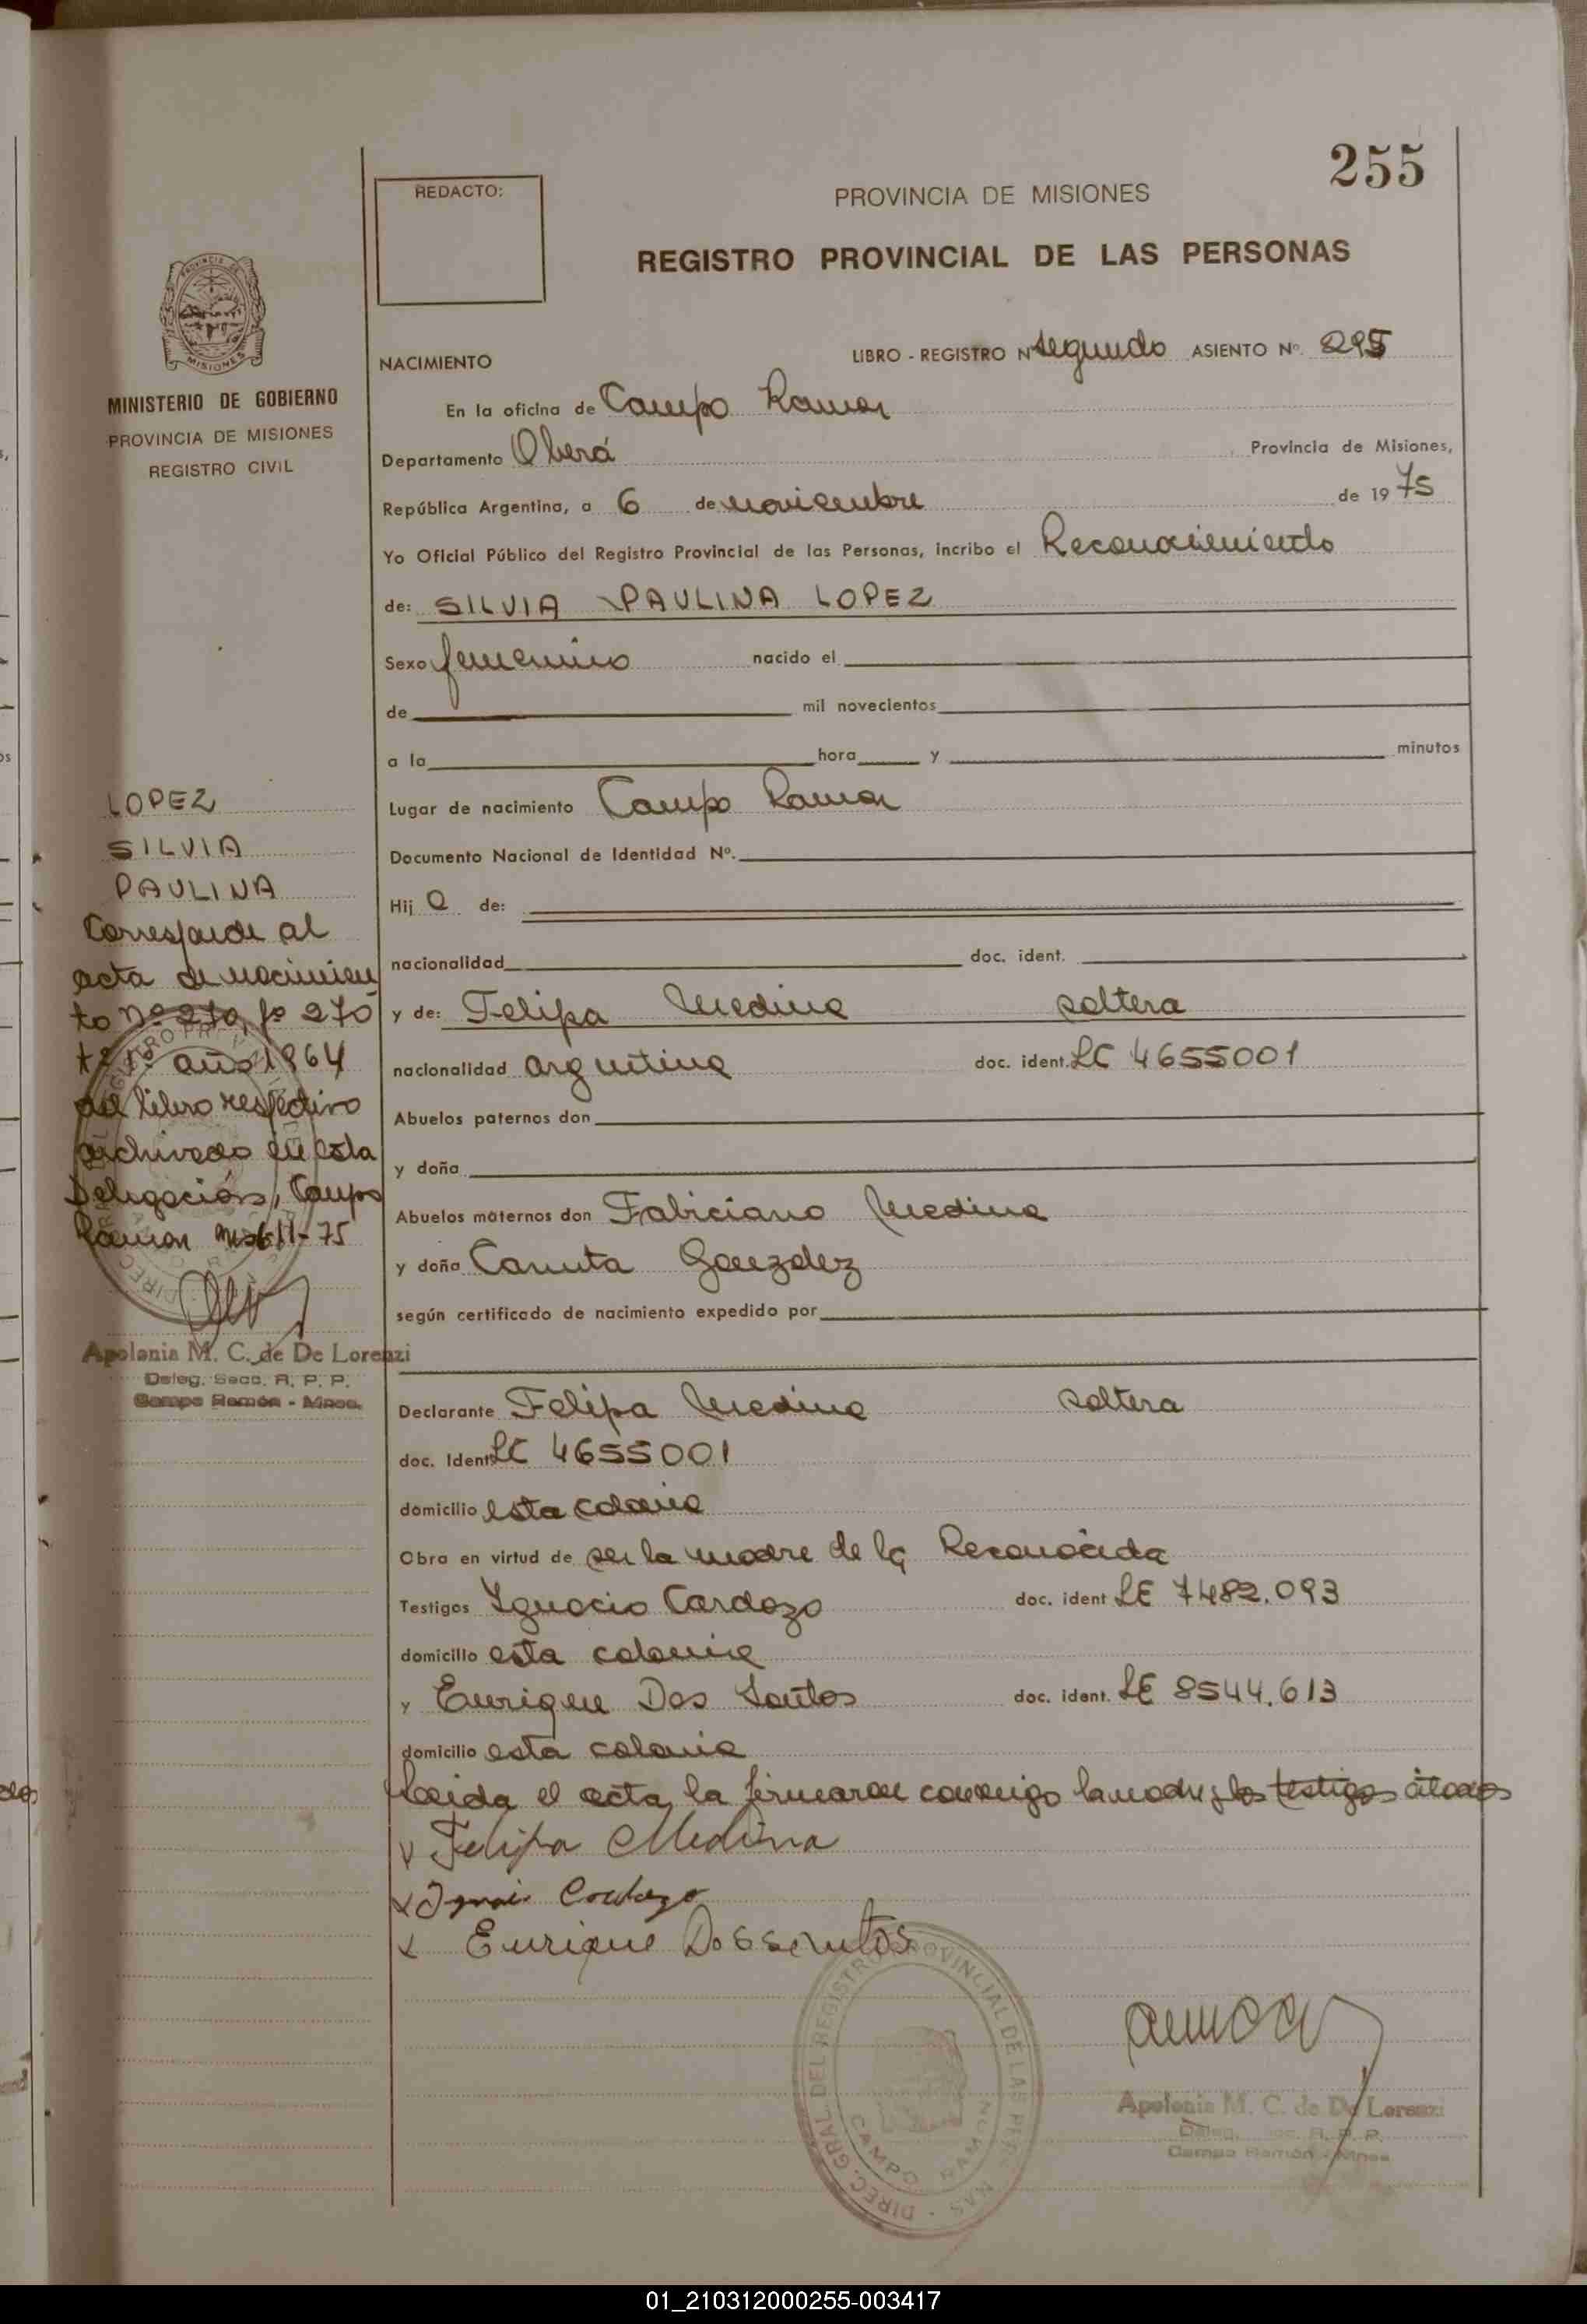 255
REDACTO:
PROVINCIA DE MISIONES
REGISTRO PROVINCIAL DE LAS PERSONAS
PROVINCIA DE
MISIONES
MINISTERIO DE GOBIERNO
PROVINCIA DE MISIONES
REGISTRO CIVIL
NACIMIENTO LIBRO - REGISTRO Nº segundo ASIENTO Nº. 295
En la oficina de Campo Ramon
Departamento Oberá, Provincia de Misiones,
República Argentina, a 6 de noviembre de 1975
Yo Oficial Público del Registro Provincial de las Personas, incribo el Reconocimiento
de: SILVIA PAULINA LOPEZ
Sexo femenino nacido el
de mil novecientos
a la hora y minutos
Lugar de nacimiento Campo Ramon
Documento Nacional de Identidad Nº.
Hij a de:
nacionalidad doc. ident.
y de: Felipa Medina soltera
nacionalidad argentina doc. ident. LC 4655001
Abuelos paternos don
y doña
Abuelos maternos don Fabiciano Medina
y doña Canuta Gonzalez
según certificado de nacimiento expedido por
Declarante Felipa Medina soltera
doc. Ident. LC 4655001
domicilio esta colonia
Obra en virtud de ser la madre de la Reconocida
Testigos Ignacio Cardozo doc. ident LE 7482.093
domicilio esta colonia
y Enrique Dos Santos doc. ident. LE 8544.613
domicilio esta colonia
Leida el acta, la firmaron conmigo la madre y los testigos citados
Felipa Medina
Enrique Dossantos
LOPEZ
SILVIA
PAULINA
Corresponde al
acta de nacimien
to nº 270, fº 270
año 1964
del libro respectivo
archivado en esta
Delegación, Campo
Ramon Mis 6-11-75
Apolonia M. C. de De Lorenzi
Deleg. Secc. R. P. P.
Campo Ramón - Mnes.
DIREC. GRAL. DEL REGISTRO PROVINCIAL DE LAS PERSONAS
CAMPO RAMON
Apolonia M. C. de De Lorenzi
Deleg. Secc. R. P. P.
Campo Ramón - Mnes.
01_210312000255-003417